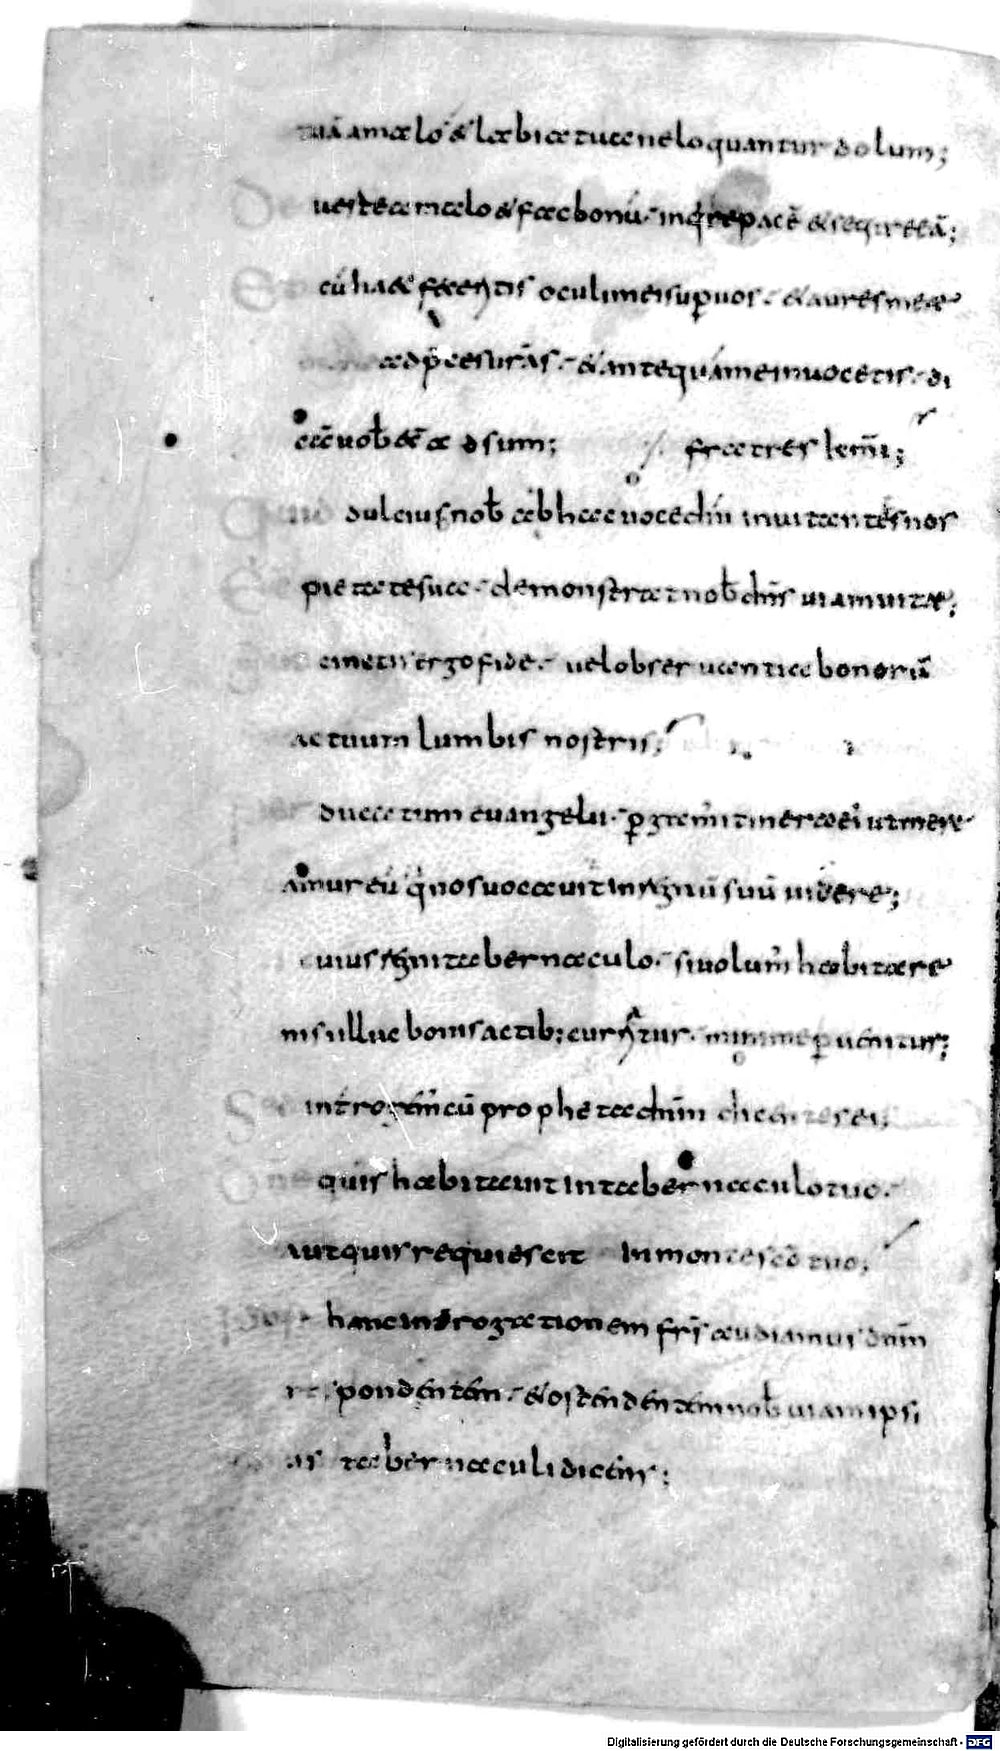 tuā a malo & labia tua ne loquantur dolum;
De uerte a malo & fac bonū · inq̇re pacē & sequere eā;
Et cū haec feceritis oculi mei sup uos · & aures meae
ad p̄ces urās · & antequā me inuocetis · di
cā uob̄ ecce adsum; fratres km̄i;
Quid dulcius nob̄ ab hac uoce dn̄i inuitantes nos
pietate sua · demonstrat nob̄ dn̄s uiam uitae;
cinctis ergo fide · uel obseruantia bonorū
actuum lumbis nostris;
per ducatum euangelii · pgam̄ itinera eī ut mere
amur eū q̇ nos uocauit in regnū suū uidere;
cuius regni tabernaculo · si uolum̄ habitare
nisi illuc bonis actib; curritur · minime peruenitur;
Sed introgēm cū propheta dn̄m dicentes ei;
Dn̄e quis habitauit in tabernaculo tuo ·
aut quis requiescit in monte sc̄o tuo;
post hanc introgationem frs̄ audiamus dnm̄
respondentem · & ostendentem nob̄ uiam ipsi
us tabernaculi dicens;
Digitalisierung gefördert durch die Deutsche Forschungsgemeinschaft - DFG